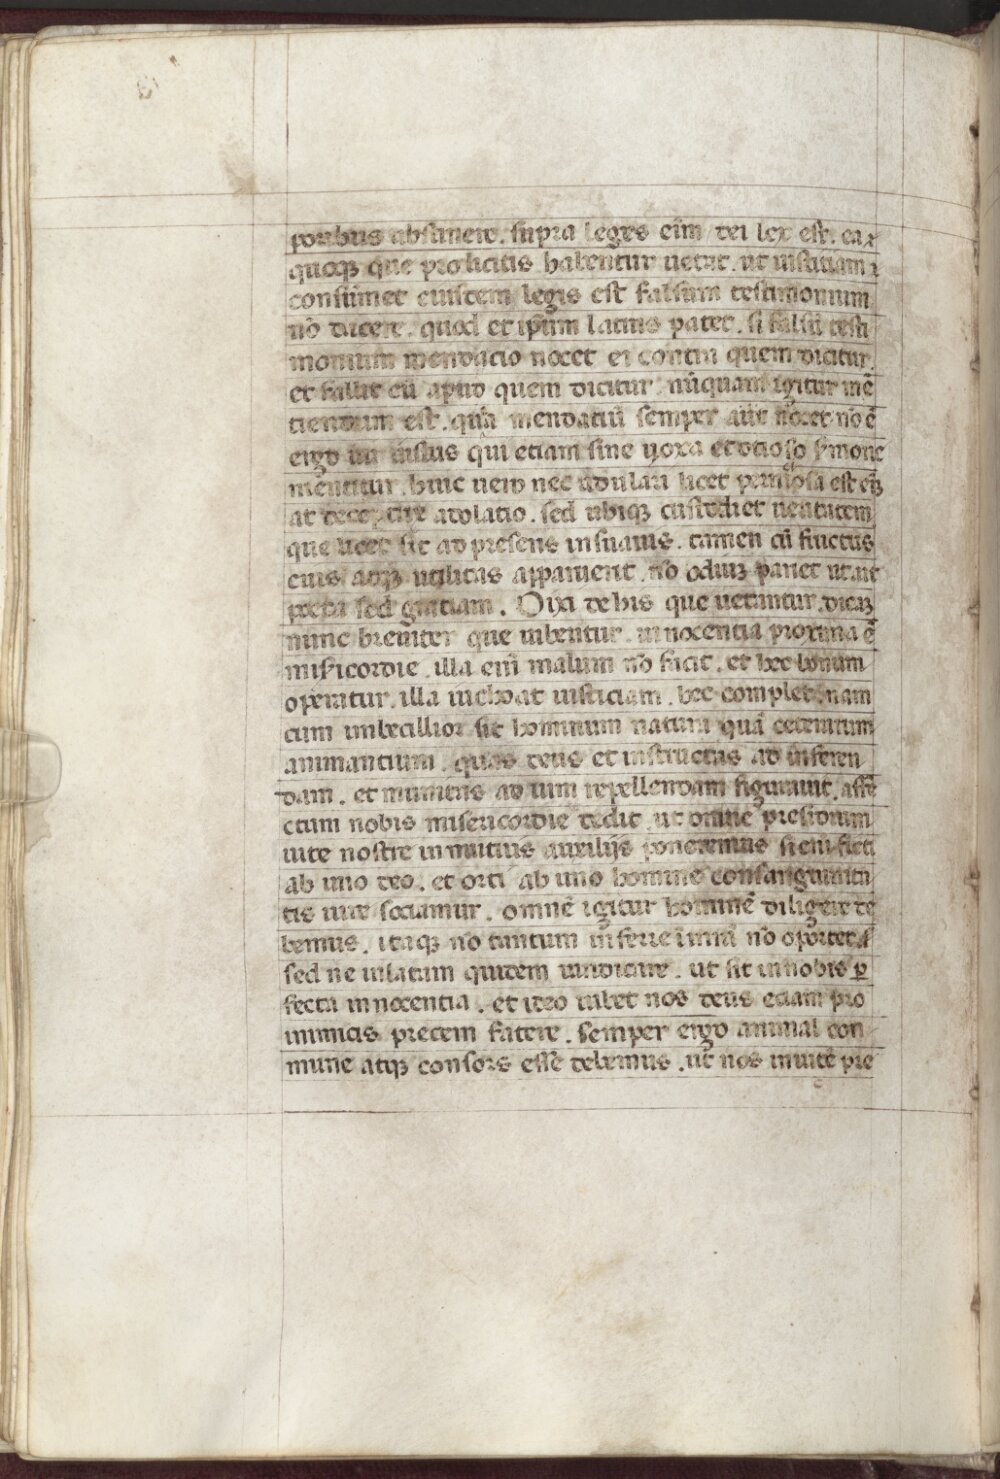 poribus abstinere. supra leges eim dei lex est. ea
quoqꝫ que pro licitis habentur uetat. ut iustitiam
consumet eiusdem legis est falsum testimonium
nō dicere. quod et ipsum latius patet. si falsū testi
monium mendacio nocet ei contra quem dicitur.
et fallit eū apud quem dicitur nūquam igitur mē
tiendum est. quia mendatiū semper aut nocet nō ē
ergo uir iustus qui etiam sine noxa et ocioso sermone
mentitur. huic uero nec adulari licet perniciosa est eīꝫ
at deceptrix adolatio. sed ubiqꝫ custodiet ueritatem
que licet sit ad presens insuauis. tamen cū fructus
eius atqꝫ utilitas apparuerit. nō odiuꝫ pariet ut ait
poeta sed gratiam. Dixi de his que uetantur. dicaꝫ
nunc breuiter que iubentur. innocentia proxima ē
misicordie. illa eni malum nō facit. et hec bonum
operatur. illa inchoat iusticiam. hec complet. nam
cum imbecillior sit hominum natura quā ceterarum
animantium. quas deus et instructas ad inferen
dam. et munitas ad uim repellendam figurauit. affe
ctum nobis misericordie dedit. ut omne presidium
uite nostre in mutuis auxilijs poneremus si eni ficti
ab uno deo. et orti ab uno homine consanguinita
tis iure sociamur. omnē igitur hominē diligere de
bemus. itaqꝫ nō tantum inferre iniuriā nō oportet
sed ne illatam quidem uindicare. ut sit in nobis ꝑ
fecta innocentia. et ideo iubet nos deus etiam pro
inimicis precem facere. semper ergo animal con
mune atqꝫ consors esse debemus. ut nos inuicē pre